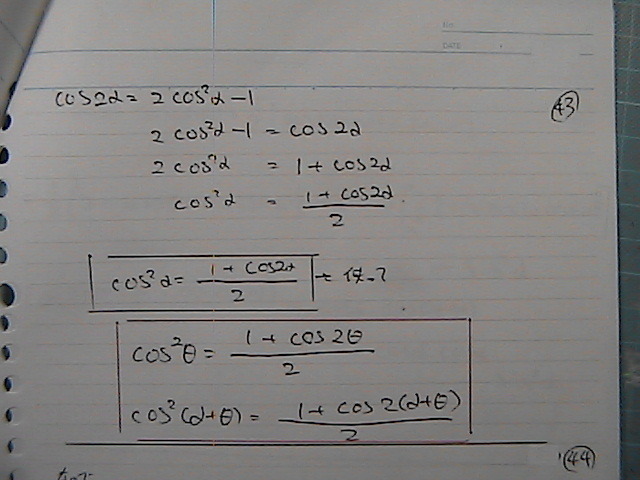 No.
DATE
cos2α = 2cos²α - 1
43
2cos²α - 1 = cos2α
2cos²α = 1 + cos2α
cos²α = (1 + cos2α)/2
cos²α = (1 + cos2α)/2
cos²θ = (1 + cos2θ)/2
cos²(α+θ) = (1 + cos2(α+θ))/2
44